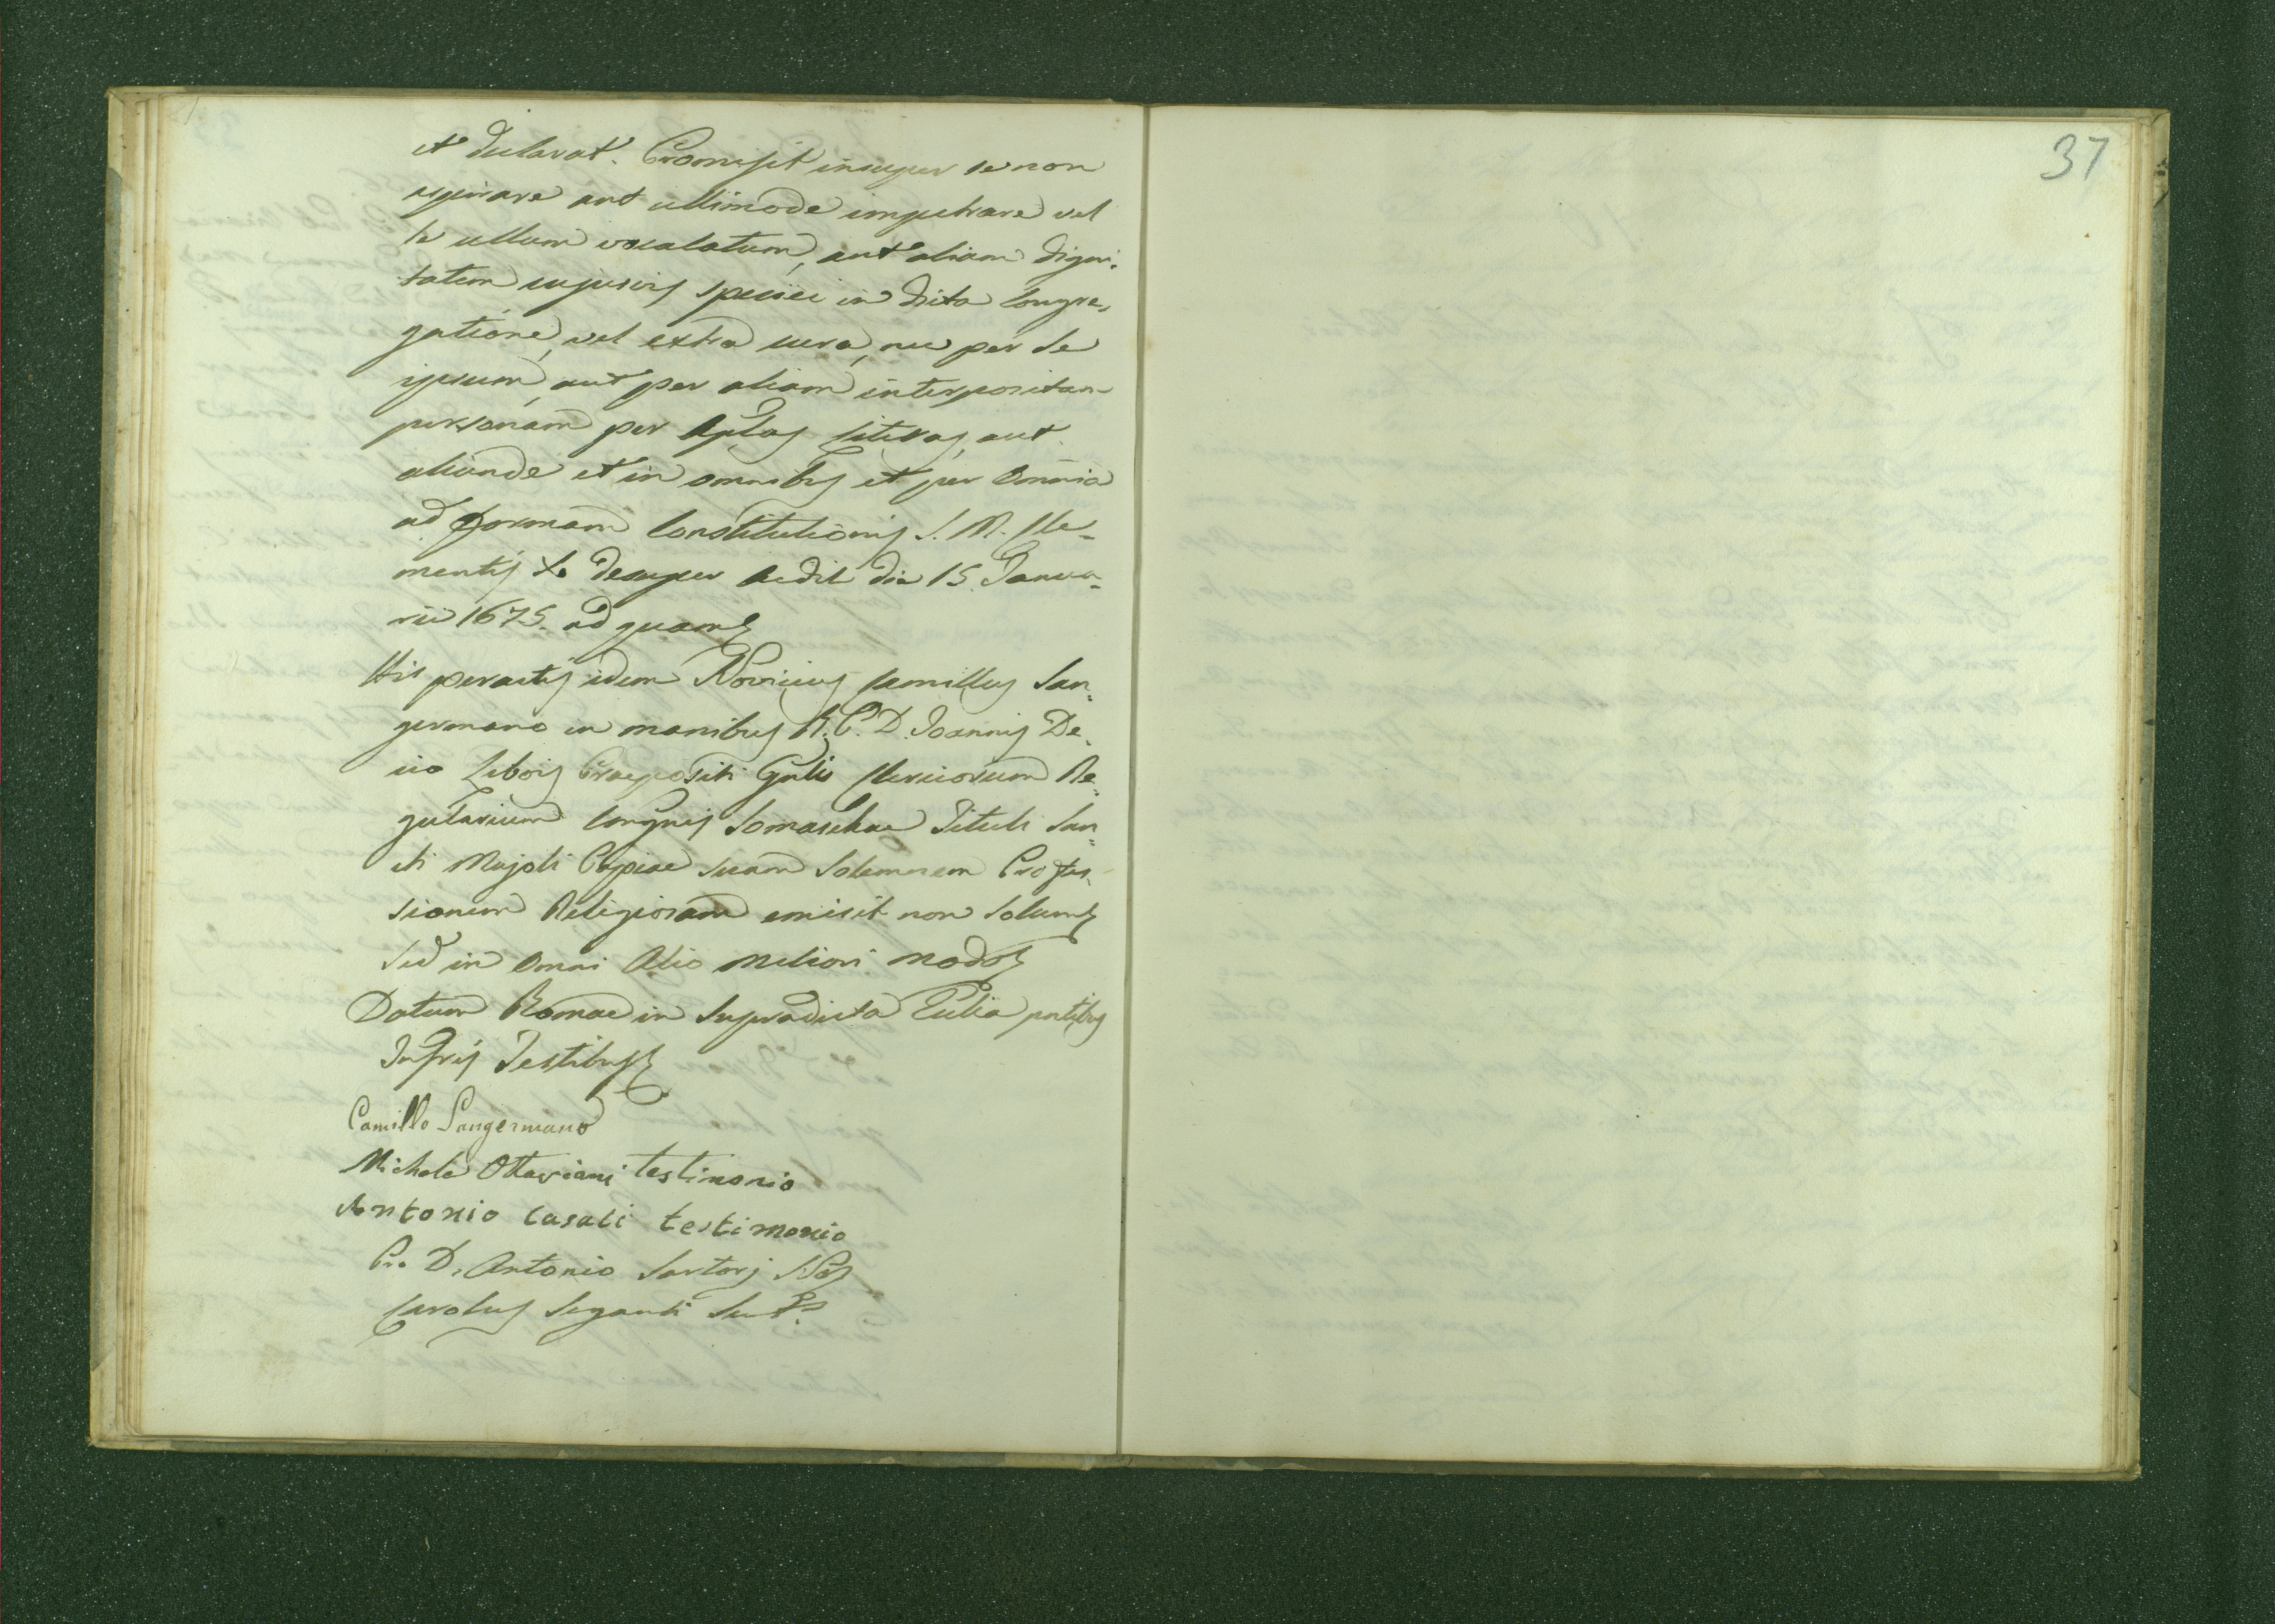 et declarat. Promisit insuper se non
aspirare aut ullimode impetrare vel
le ullum vocalatum, aut aliam digni-
tatem cujusvis speciei in dicta Congre-
gatione, vel extra eura, nec per se
ipsum, aut per aliam interpositam
personam per Aplas Literas, aut
aliunde et in omnibus et per omnia
ad formam Constitutionis S. M. Cle-
mentis Xe desuper Aedit die 15. Janua-
rii 1675. ad quam
His peractis idem Novicius Camillus San-
germano in manibus R. P. D. Joannis De-
cio Libois Praepositi Gnlis Clericorum Re-
gularium Congnis Somaschae Tituli San-
cti Majoli Papiae suam Solemnem Profes-
sionem Religiosam emisit non solum
Sed in omni Alio meliori modo
Datum Romae in Supradicta Eclia pntibus
Infris Testibus
Camillo Sangermano
Michele Ottaviani testimonio
Antonio Casali testimonio
Pro D. Antonio Sartorj Not
Carolus Seganti Subs.
37